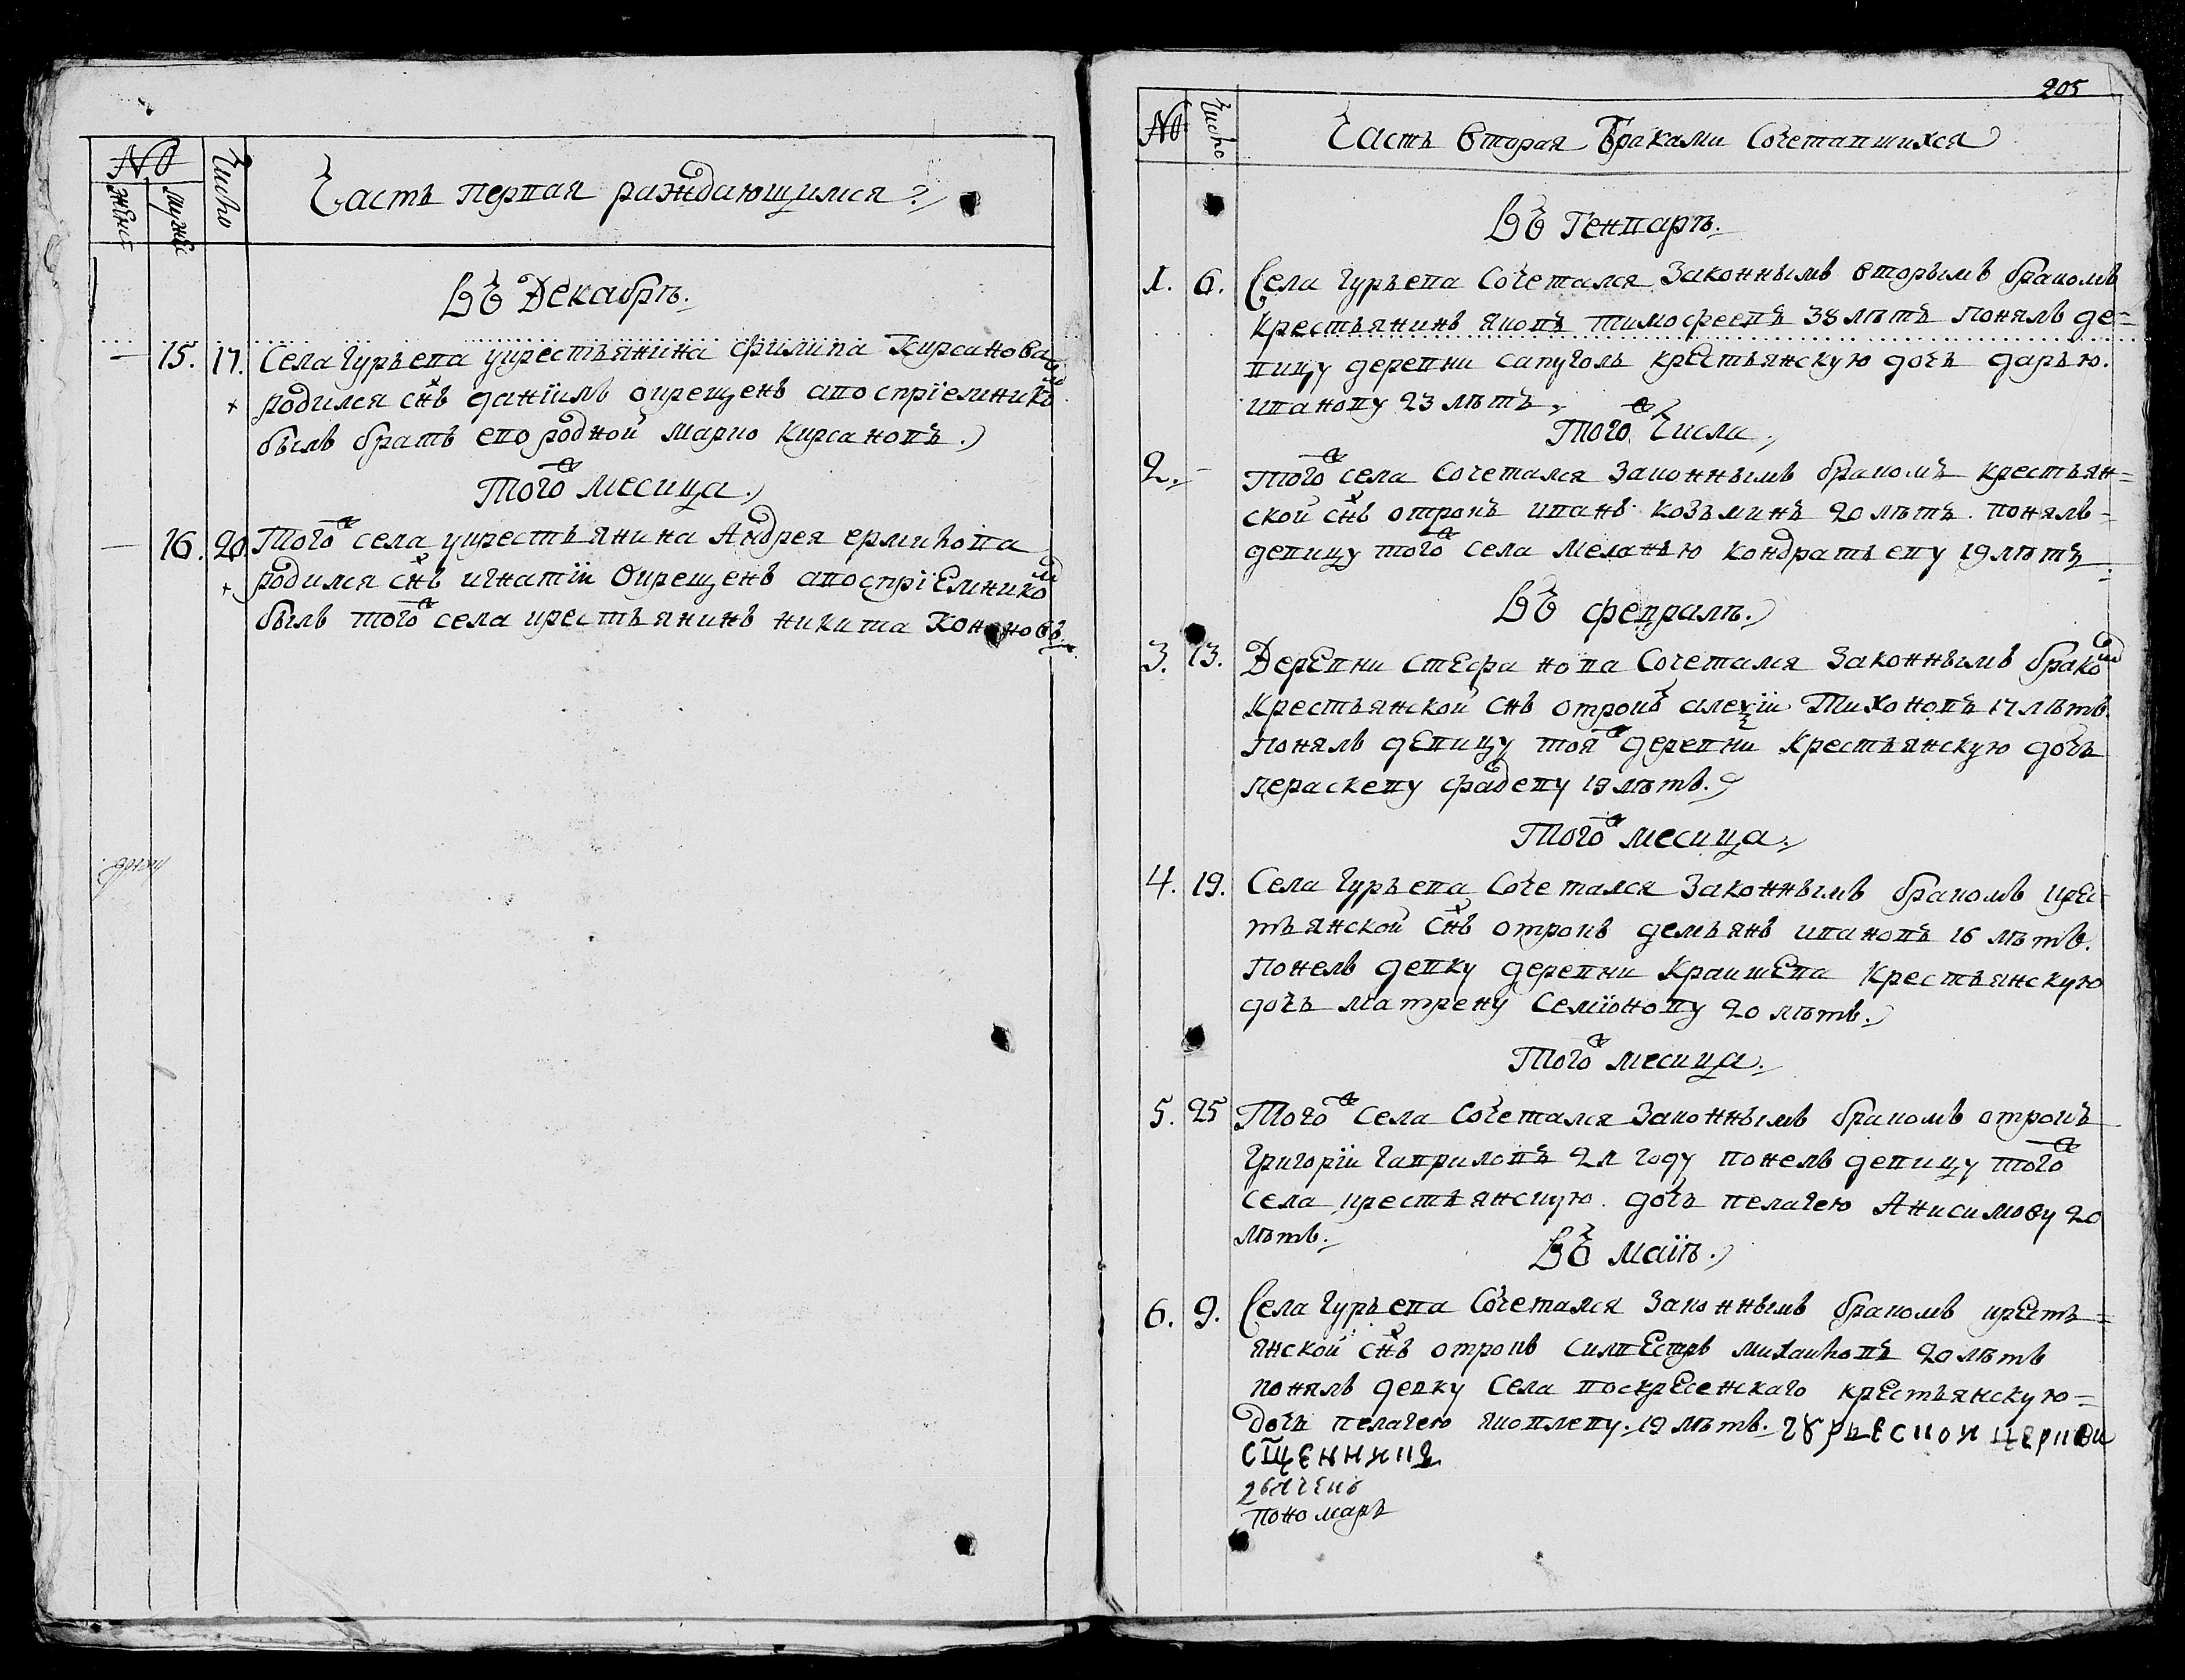 №
женс
мужс
Число
Часть первая раждающимся
Въ Декабрѣ.
15. 17. Села Гурьева укрестьянина филипа Кирсанова
родился снъ данїилъ окрещенъ авоспрїемникомъ
былъ братъ ево родной Марко Кирсановъ.
Тогоже месица.
16. 20. Тогоже села укрестьянина Андрея ермилова
родился снъ игнатїй окрещенъ авоспрїемникомъ
былъ тогоже села крестьянинъ никита Кононовъ.
205
№ Число
Часть вторая браками Сочетавшихся
Въ Генварѣ.
1. 6. Села Гурьева Сочетался Законнымъ вторымъ бракомъ
крестьянинъ яковъ тимофеевъ 38 лѣтъ понялъ де=
вицу деревни сапуголь крестьянскую дочь дарью.
иванову 23 лѣтъ.
Тогоже Числа.
2. - тогоже села Сочетался Законнымъ бракомъ крестьян=
ской снъ отрокъ иванъ козьминъ 20 лѣтъ. понялъ=
девицу тогоже села меланью кондратьеву 19 лѣтъ.
Въ февралѣ.
3. 13. Деревни стефанова Сочетался Законнымъ бракомъ
крестьянской снъ отрокъ алеѯїй Тихоновъ 17 лѣтъ.
понялъ девицу тояже деревни крестьянскую дочь
пераскеву фадеву 19 лѣтъ.
Тогоже месица.
4. 19. Села Гурьева Сочетался Законнымъ бракомъ крес-
тьянской снъ отрокъ демьянъ ивановъ 16 лѣтъ.
понелъ девку деревни Краишева крестьянскую
дочь матрену Семїонову 20 лѣтъ.
Тогоже месица.
5. 25 Тогоже села Сочетался Законнымъ бракомъ отрокъ
Григорїй гавриловъ 21 году понелъ девицу тогоже
села крестьянскую дочь пелагею Анисимову 20
лѣтъ.
Въ маїѣ.
6. 9. Села Гурьева Сочетался Законнымъ бракомъ кресть=
янской снъ отрокъ силвестръ михаиловъ 20 лѣтъ
понялъ девку Села воскресенскаго крестьянскую=
дочь пелагею яковлеву. 19 лѣтъ. гꙋрьеской церкви
сщенникъ
пономарь